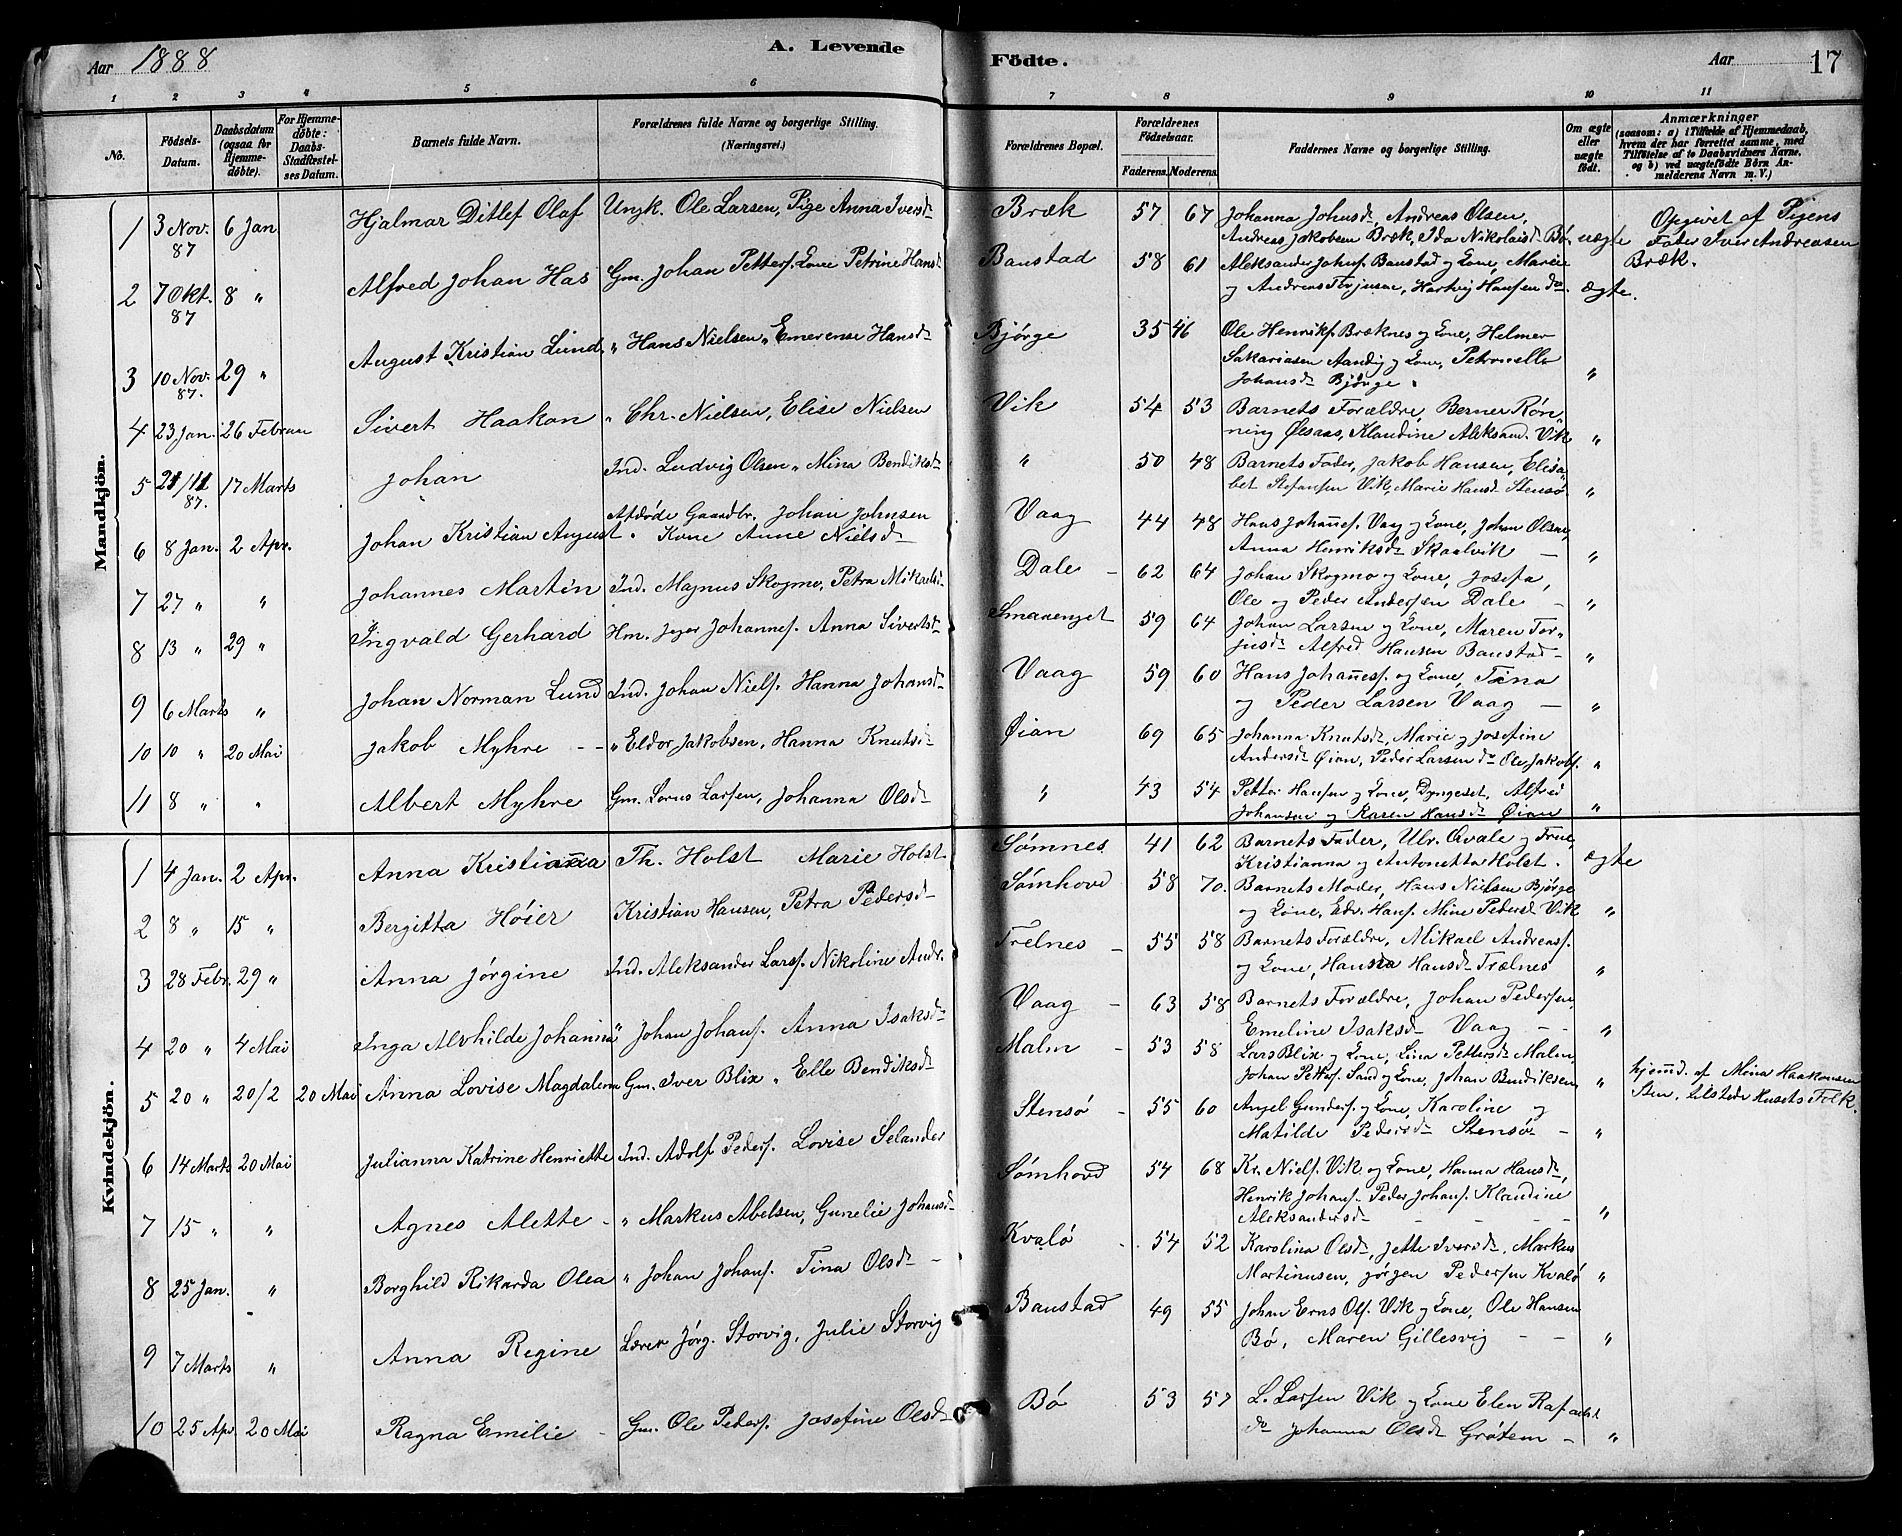 Aar 1888
A. Levende
Födte.
Aar 17
1 2 3 4 5 6 7 8 9 10 11
No.
Födsels-Datum.
Daabsdatum (ogsaa for Hjemme-døbte).
For Hjemme-døbte: Daabs-Stadfæstel-ses Datum.
Barnets fulde Navn.
Forældrenes fulde Navne og borgerlige Stilling. (Næringsvei.)
Forældrenes Bopæl.
Forældrenes Fødselsaar.
Faderens. Moderens.
Faddernes Navne og borgerlige Stilling.
Om ægte eller uægte født.
Anmærkninger
(saasom: a) i Tilfælde af Hjemmedaab, hvem der har forrettet samme, med Tilføielse af to Daabsvidners Navne, og b) ved uægtefødte Børn An-melderens Navn m. V.)
Mandkjön.
1 3 Nov. 87 6 Jan Hjalmar Ditlef Olaf Ungk. Ole Larsen, Pige Anna Iversd Bræk 57 67 Johanna Johnsd, Andreas Olsen,
Andreas Jakobsen Bræk, Ida Nikolaisd Bø uægte Opgivet af Pigens Fader Iver Andreasen Bræk.
2 7 Okt. 87 8 " Alfred Johan Has Gm. Johan Petters. Kone Petrine Hansd Baustad 58 61 Aleksander Johns. Baustad og Kone, Marie
og Andreas Torjusen, Hartvig Hansen do. ægte.
3 10 Nov. 87. 29 " August Kristian Lund " Hans Nielsen " Emerense Hansd Bjørge 35 46 Ole Henriks. Bræknes og Kone, Helmer
Sakariasen Aandig og Kone, Petronelle
Johansd Bjørge. "
4 23 Jan. 26 Februar Sivert Haakon " Chr. Nielsen, Elise Nielsen Vik 54 53 Barnets Forældre, Berner Røn-
ning Ølsaas, Klaudine Aleksand. Vik "
5 21/11 87. 17 Marts Johan Ind. Ludvig Olsen " Mina Bendiksd " 50 48 Barnets Fader, Jakob Hansen, Elisa-
bet Stefansen Vik, Marie Hansd Stensø "
6 8 Jan. 2 Apr. Johan Kristian August Afdøde Gaardbr. Johan Johnsen
Kone Anne Nielsd Vaag 44 48 Hans Johannes. Vaag og Kone, Johan Olsen,
Anna Henriksd Skaalvik "
7 27 " " Johannes Martin Ind. Magnus Skogmo, Petra Mikaelsd Dale 62 64 Johan Skogmo og Kone, Josefa,
Ole og Peder Andersen Dale "
8 13 " 29 " Ingvald Gerhard Hm. Johannes. Anna Sivertsd Smaaenget 59 64 Johan Larsen og Kone, Maren Tor-
jusd Alfred Hansen Baustad "
9 6 Marts " Johan Norman Lund Ind. Johan Niels. Hanna Johansd Vaag 59 60 Hans Johannes. og Kone, Tina
og Peder Larsen Vaag "
10 10 " 20 Mai Jakob Myhre " Eldor Jakobsen, Hanna Knutsd Øian 69 65 Johanna Knutsd, Marie og Josefine
Andersd Øian, Peder Larsen do Ole Jakobs. "
11 8 " " Albert Myhre Gm. Lorns Larsen, Johanna Olsd " 43 54 Petter Hansen og Kone, Dyngeset, Alfred
Johansen og Karen Hansd Øian "
Kvindekjön.
1 4 Jan. 2 Apr. Anna Kristianna Th. Holst Marie Holst Sømnes 41 62 Barnets Fader, Ulr. Qvale og Frue,
Kristianna og Antonetta Holst. ægte
2 8 " 15 " Bergitta Høier Kristian Hansen, Petra Pedersd Sømhovd 58 70. Barnets Moder, Hans Nielsen Bjørge
og Kone, Edv. Hans. Mine Pedersd Vik "
3 28 Febr. 29 " Anna Jørgine Ind. Aleksander Lars. Nikoline Andr. Trelnes 55 58 Barnets Forældre, Mikael Andreas.
og Kone, Hansna Hansd Trælnes "
4 20 " 4 Mai Inga Alvhilde Johanna " Johan Johans. Anna Isaksd Vaag 63 58 Barnets Forældre, Johan Pedersen,
Emeline Isaksd Vaag "
5 20 " 20/2 20 Mai Anna Lovise Magdalena Gm. Iver Blix " Elle Bendiksd Malm 53 58 Lars Blix og Kone, Lina Pettersd Malm,
Johan Petters. Sand og Kone, Johan Bendiksen " hjemd. af Mina Haakonsen
Sten, tilstede Husets Folk.
6 14 Marts 20 Mai Julianna Katrine Henriette Ind. Adolf Peders. Lovise Selander Stensø 55 60 Angel Gunders. og Kone, Karoline og
Matilde Pedersd Stensø "
7 15 " " Agnes Alette " Markus Abelsen, Gunelie Johansd Sømhovd 54 68 Kr. Niels. Vik og Kone, Hanna Hansd,
Henrik Johans. Peder Johans. Klaudine
Aleksandersd "
8 25 Jan. " Borghild Rikarda Olea " Johan Johans. Tina Olsd Kvalø 54 52 Karolina Olsd, Jette Iversd, Markus
Martinusen, Jørgen Pedersen Kvalø "
9 7 Marts " Anna Regine Lærer Jørg. Storvig, Julie Storvig Baustad 49 55 Johan Erns Ols. Vik og Kone, Ole Hansen
Bø, Maren Gillesvig "
10 25 Apr. 20 Mai Ragna Emilie Gm. Ole Peders. Josefine Olsd Bø 53 57 L. Larsen Vik og Kone Elen Rafaelsd
do Johanna Olsd Grøtem "